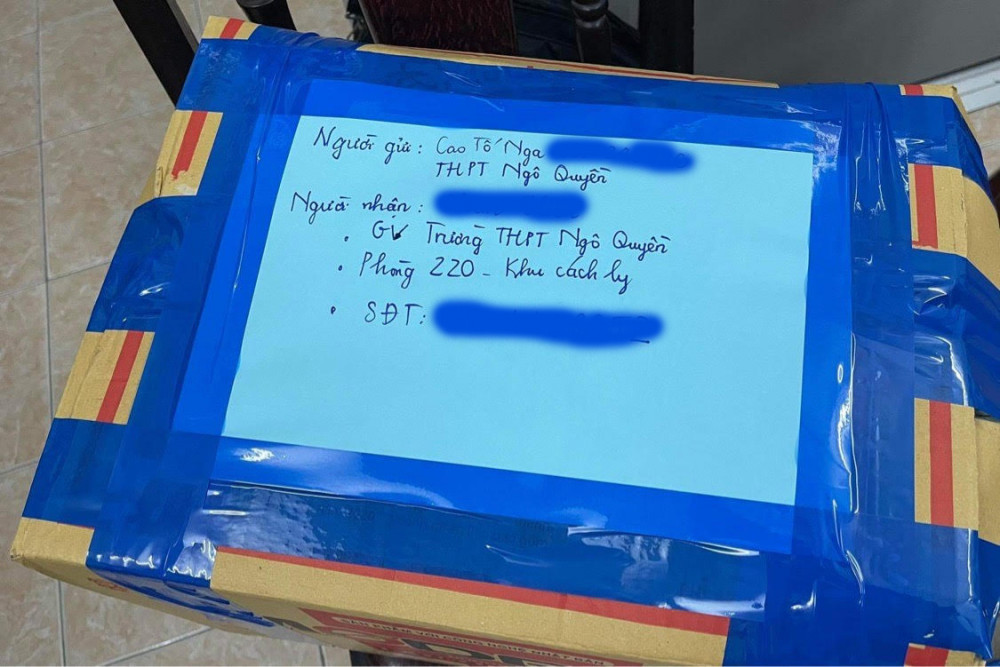 Người gửi: Cao Tố Nga
THPT Ngô Quyền
Người nhận:
. GV Trường THPT Ngô Quyền
. Phòng 220 - Khu cách ly
. SĐT: